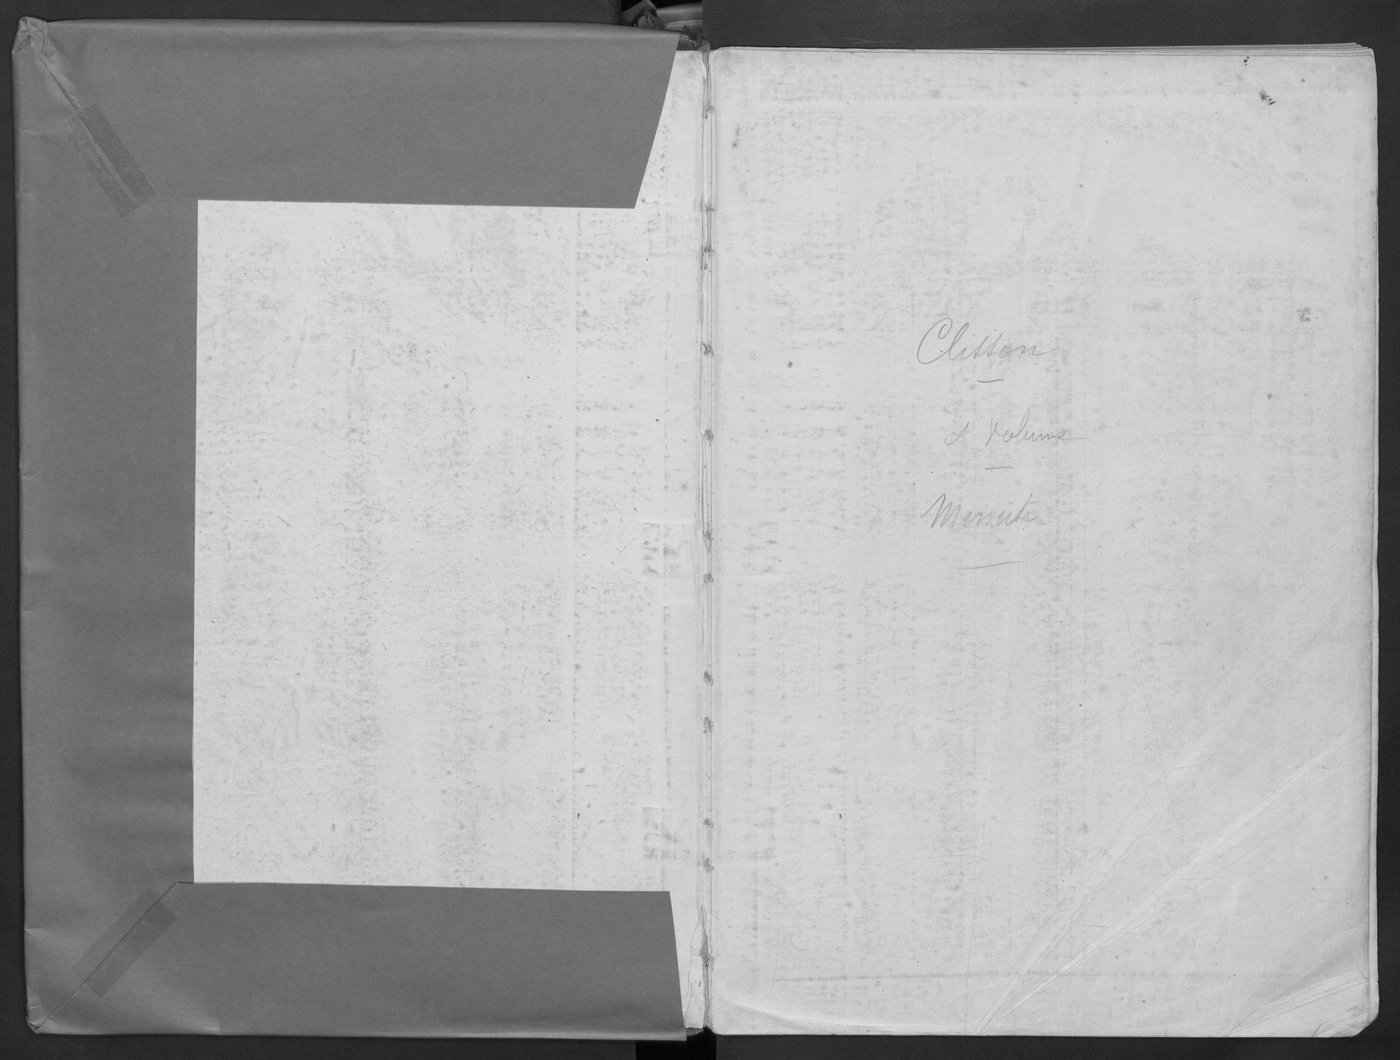 Clisson
1 Volume
Minute